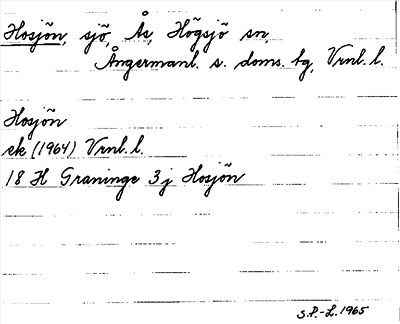 Hosjön, sjö, Ås, Högsjö sn,
Ångermanl. s. doms. tg, Vrnl. l.
Hosjön
ek (1964) Vrnl. l.
18 H Graninge 3 j Hosjön
S.P.-L. 1965